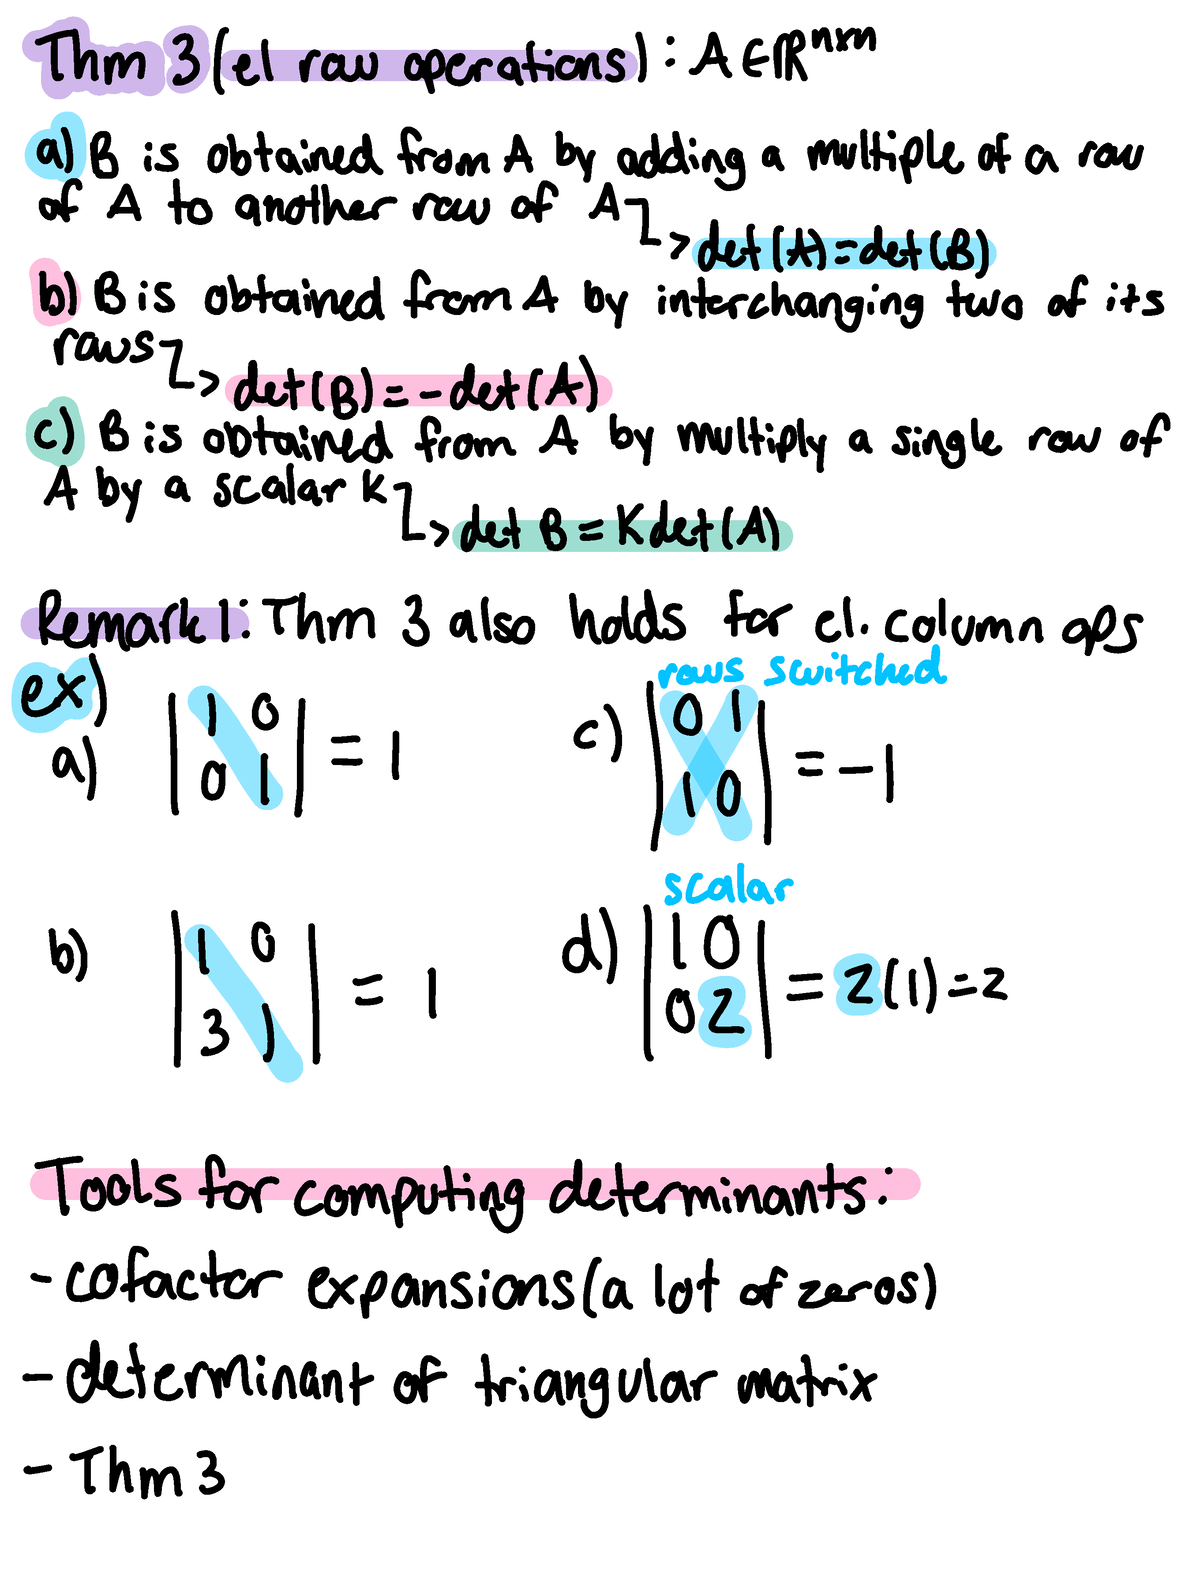 Thm 3 (el row operations) : A ∈ ℝⁿˣⁿ
a) B is obtained from A by adding a multiple of a row
of A to another row of A
↳ det(A) = det(B)
b) B is obtained from A by interchanging two of its
rows
↳ det(B) = -det(A)
c) B is obtained from A by multiply a single row of
A by a scalar K
↳ det B = K det(A)
Remark 1: Thm 3 also holds for el. column ops
ex)
a) | 1 0 |
| 0 1 | = 1
rows switched
c) | 0 1 |
| 1 0 | = -1
b) | 1 0 |
| 3 1 | = 1
scalar
d) | 1 0 |
| 0 2 | = 2(1) = 2
Tools for computing determinants:
- cofactor expansions (a lot of zeros)
- determinant of triangular matrix
- Thm 3